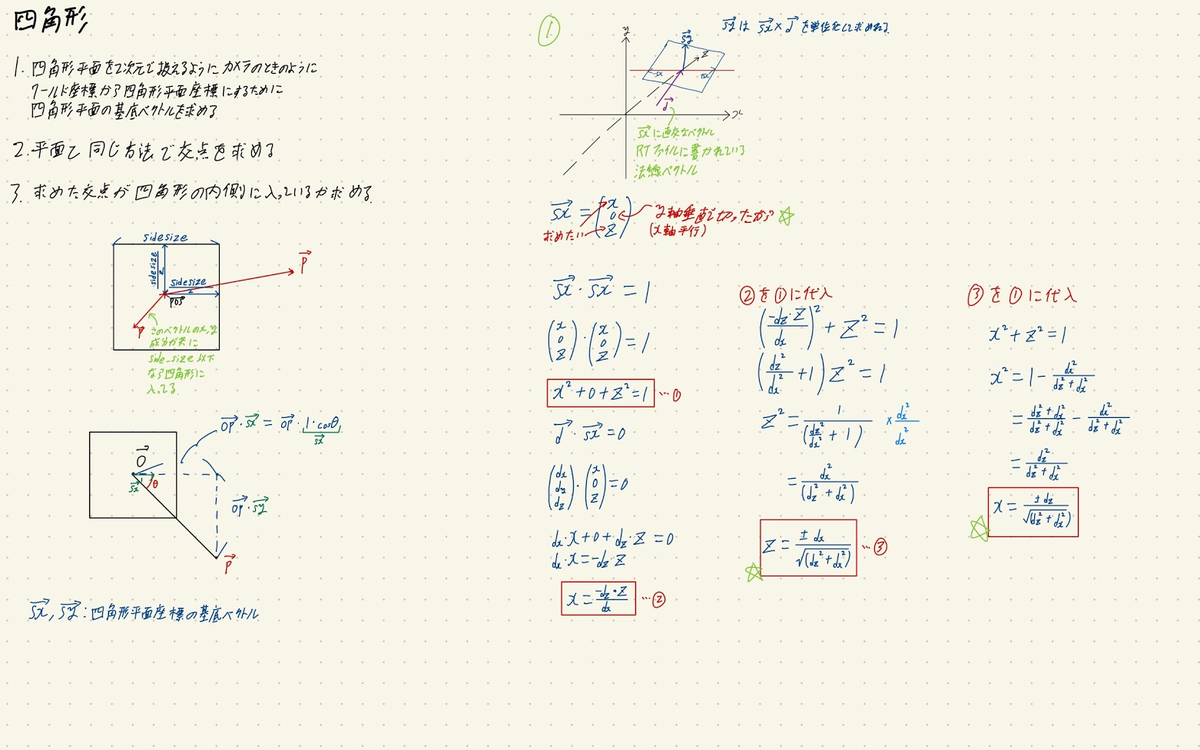 四角形
1. 四角形平面を2次元で扱えるようにカメラのときのように
ワールド座標から四角形平面座標にするために
四角形平面の基底ベクトルを求める
2. 平面と同じ方法で交点を求める
3. 求めた交点が四角形の内側に入っているか求める
sidesize
sidesize
2
sidesize
2
pos
p→
p→
このベクトルのx,y
成分が共に
side_size以下
なら四角形に
入ってる
op→・sx→ = op→・1・cosθ
sx→
O→
sx→
θ
op→・sy→
p→
sx→, sy→ : 四角形平面座標の基底ベクトル
①
sy→は sx→×d→を単位化して求める
y
sy→
z
sx
d→
x
sx→に直交なベクトル
RTファイルに書かれている
法線ベクトル
sx→ = (x 0 z)
求めたい
y軸垂直で切ったから
(x軸平行)
sx→・sx→ = 1
(x 0 z)・(x 0 z) = 1
x²+0+z²=1 …①
d→・sx→=0
(dx dy dz)・(x 0 z)=0
dx・x+0+dz・z=0
dx・x=-dz・z
x = -dz・z/dx …②
②を①に代入
(-dz・z/dx)²+z²=1
(dz²/dx²+1)z²=1
z²=1/(dz²/dx²+1) ×dx²/dx²
=dx²/(dz²+dx²)
z=±dx/√(dz²+dx²) …③
③を①に代入
x²+z²=1
x²=1-dx²/dz²+dx²
=dz²+dx²/dz²+dx² - dx²/dz²+dx²
=dz²/dz²+dx²
x=±dz/√(dz²+dx²)